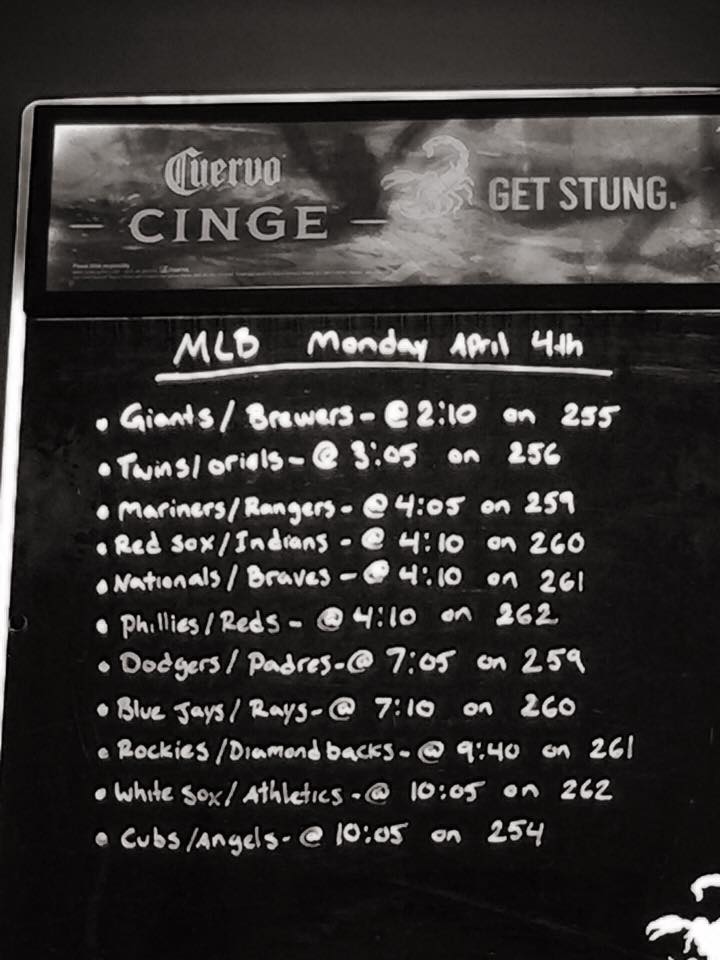 Cuervo
— CINGE —
GET STUNG.
MLB Monday April 4th
• Giants/Brewers - @ 2:10 on 255
• Twins/oriols - @ 3:05 on 256
• Mariners/Rangers - @ 4:05 on 259
• Red Sox/Indians - @ 4:10 on 260
• Nationals/Braves - @ 4:10 on 261
• Phillies/Reds - @ 4:10 on 262
• Dodgers/Padres - @ 7:05 on 259
• Blue Jays/Rays - @ 7:10 on 260
• Rockies/Diamondbacks - @ 9:40 on 261
• White Sox/Athletics - @ 10:05 on 262
• Cubs/Angels - @ 10:05 on 254